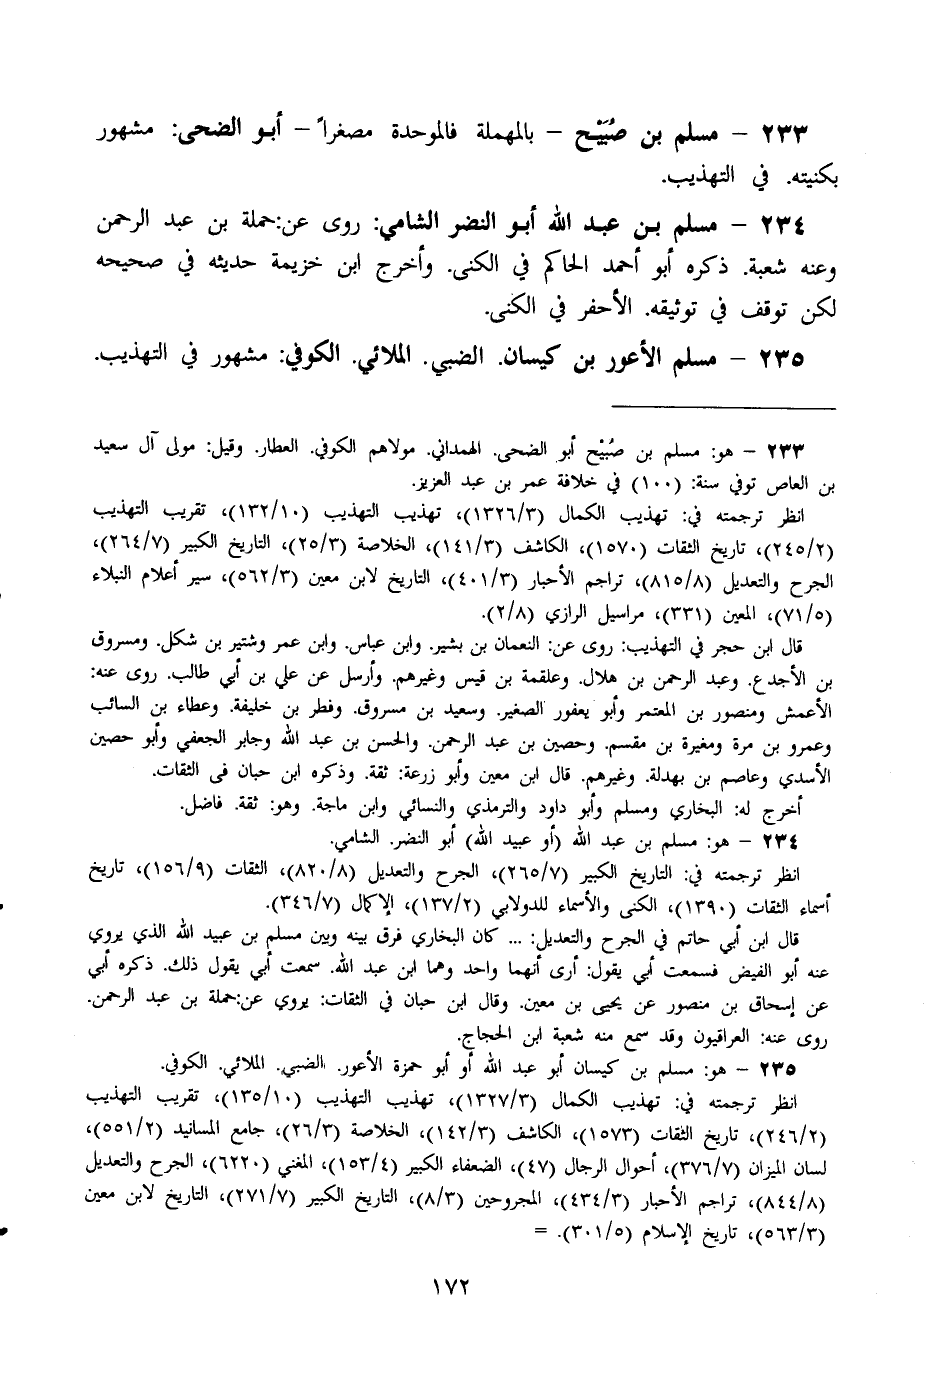 ٢٣٣ – مسلم بن صُبَيْح – بالمهملة فالموحدة مصغراً – أبو الضحى: مشهور
بكنيته. في التهذيب.
٢٣٤ – مسلم بن عبد الله أبو النضر الشامي: روى عن:حملة بن عبد الرحمن
وعنه شعبة. ذكره أبو أحمد الحاكم في الكنى. وأخرج ابن خزيمة حديثه في صحيحه
لكن توقف في توثيقه. الأحفر في الكنى.
٢٣٥ – مسلم الأعور بن كيسان. الضبي. الملائي. الكوفي: مشهور في التهذيب.
٢٣٣ – هو: مسلم بن صُبَيْح أبو الضحى. الهمداني. مولاهم الكوفي. العطار. وقيل: مولى آل سعيد
بن العاص توفي سنة: (١٠٠) في خلافة عمر بن عبد العزيز.
انظر ترجمته في: تهذيب الكمال (١٣٢٦/٣)، تهذيب التهذيب (١٣٢/١٠)، تقريب التهذيب
(٢٤٥/٢)، تاريخ الثقات (١٥٧٠)، الكاشف (١٤١/٣)، الخلاصة (٢٥/٣)، التاريخ الكبير (٢٦٤/٧)،
الجرح والتعديل (٨١٥/٨)، تراجم الأحبار (٤٠١/٣)، التاريخ لابن معين (٥٦٢/٣)، سير أعلام النبلاء
(٧١/٥)، المعين (٣٣١)، مراسيل الرازي (٢/٨).
قال ابن حجر في التهذيب: روى عن: النعمان بن بشير. وابن عباس. وابن عمر وشتير بن شكل. ومسروق
بن الأجدع. وعبد الرحمن بن هلال. وعلقمة بن قيس وغيرهم. وأرسل عن علي بن أبي طالب. روى عنه:
الأعمش ومنصور بن المعتمر وأبو يعفور الصغير. وسعيد بن مسروق. وفطر بن خليفة. وعطاء بن السائب
وعمرو بن مرة ومغيرة بن مقسم. وحصين بن عبد الرحمن. والحسن بن عبد الله وجابر الجعفي وأبو حصين
الأسدي وعاصم بن بهدلة. وغيرهم. قال ابن معين وأبو زرعة: ثقة. وذكره ابن حبان فى الثقات.
أخرج له: البخاري ومسلم وأبو داود والترمذي والنسائي وابن ماجة. وهو: ثقة. فاضل.
٢٣٤ – هو: مسلم بن عبد الله (أو عبيد الله) أبو النضر. الشامي.
انظر ترجمته في: التاريخ الكبير (٢٦٥/٧)، الجرح والتعديل (٨٢٠/٨)، الثقات (١٥٦/٩)، تاريخ
أسماء الثقات (١٣٩٠)، الكنى والأسماء للدولابي (١٣٧/٢)، الإكمال (٣٤٦/٧).
قال ابن أبي حاتم في الجرح والتعديل: ... كان البخاري فرق بينه وبين مسلم بن عبيد الله الذي يروي
عنه أبو الفيض فسمعت أبي يقول: أرى أنهما واحد وهما ابن عبد الله. سمعت أبي يقول ذلك. ذكره أبي
عن إسحاق بن منصور عن يحيى بن معين. وقال ابن حبان في الثقات: يروي عن:حملة بن عبد الرحمن.
روى عنه: العراقيون وقد سمع منه شعبة ابن الحجاج.
٢٣٥ – هو: مسلم بن كيسان أبو عبد الله أو أبو حمزة الأعور. الضبي. الملائي. الكوفي.
انظر ترجمته في: تهذيب الكمال (١٣٢٧/٣)، تهذيب التهذيب (١٣٥/١٠)، تقريب التهذيب
(٢٤٦/٢)، تاريخ الثقات (١٥٧٣)، الكاشف (١٤٢/٣)، الخلاصة (٢٦/٣)، جامع المسانيد (٥٥١/٢)،
لسان الميزان (٣٧٦/٧)، أحوال الرجال (٤٧)، الضعفاء الكبير (١٥٣/٤)، المغني (٦٢٢٠)، الجرح والتعديل
(٨٤٤/٨)، تراجم الأحبار (٤٣٤/٣)، المجروحين (٨/٣)، التاريخ الكبير (٢٧١/٧)، التاريخ لابن معين
(٥٦٣/٣)، تاريخ الإسلام (٣٠١/٥). =
١٧٢